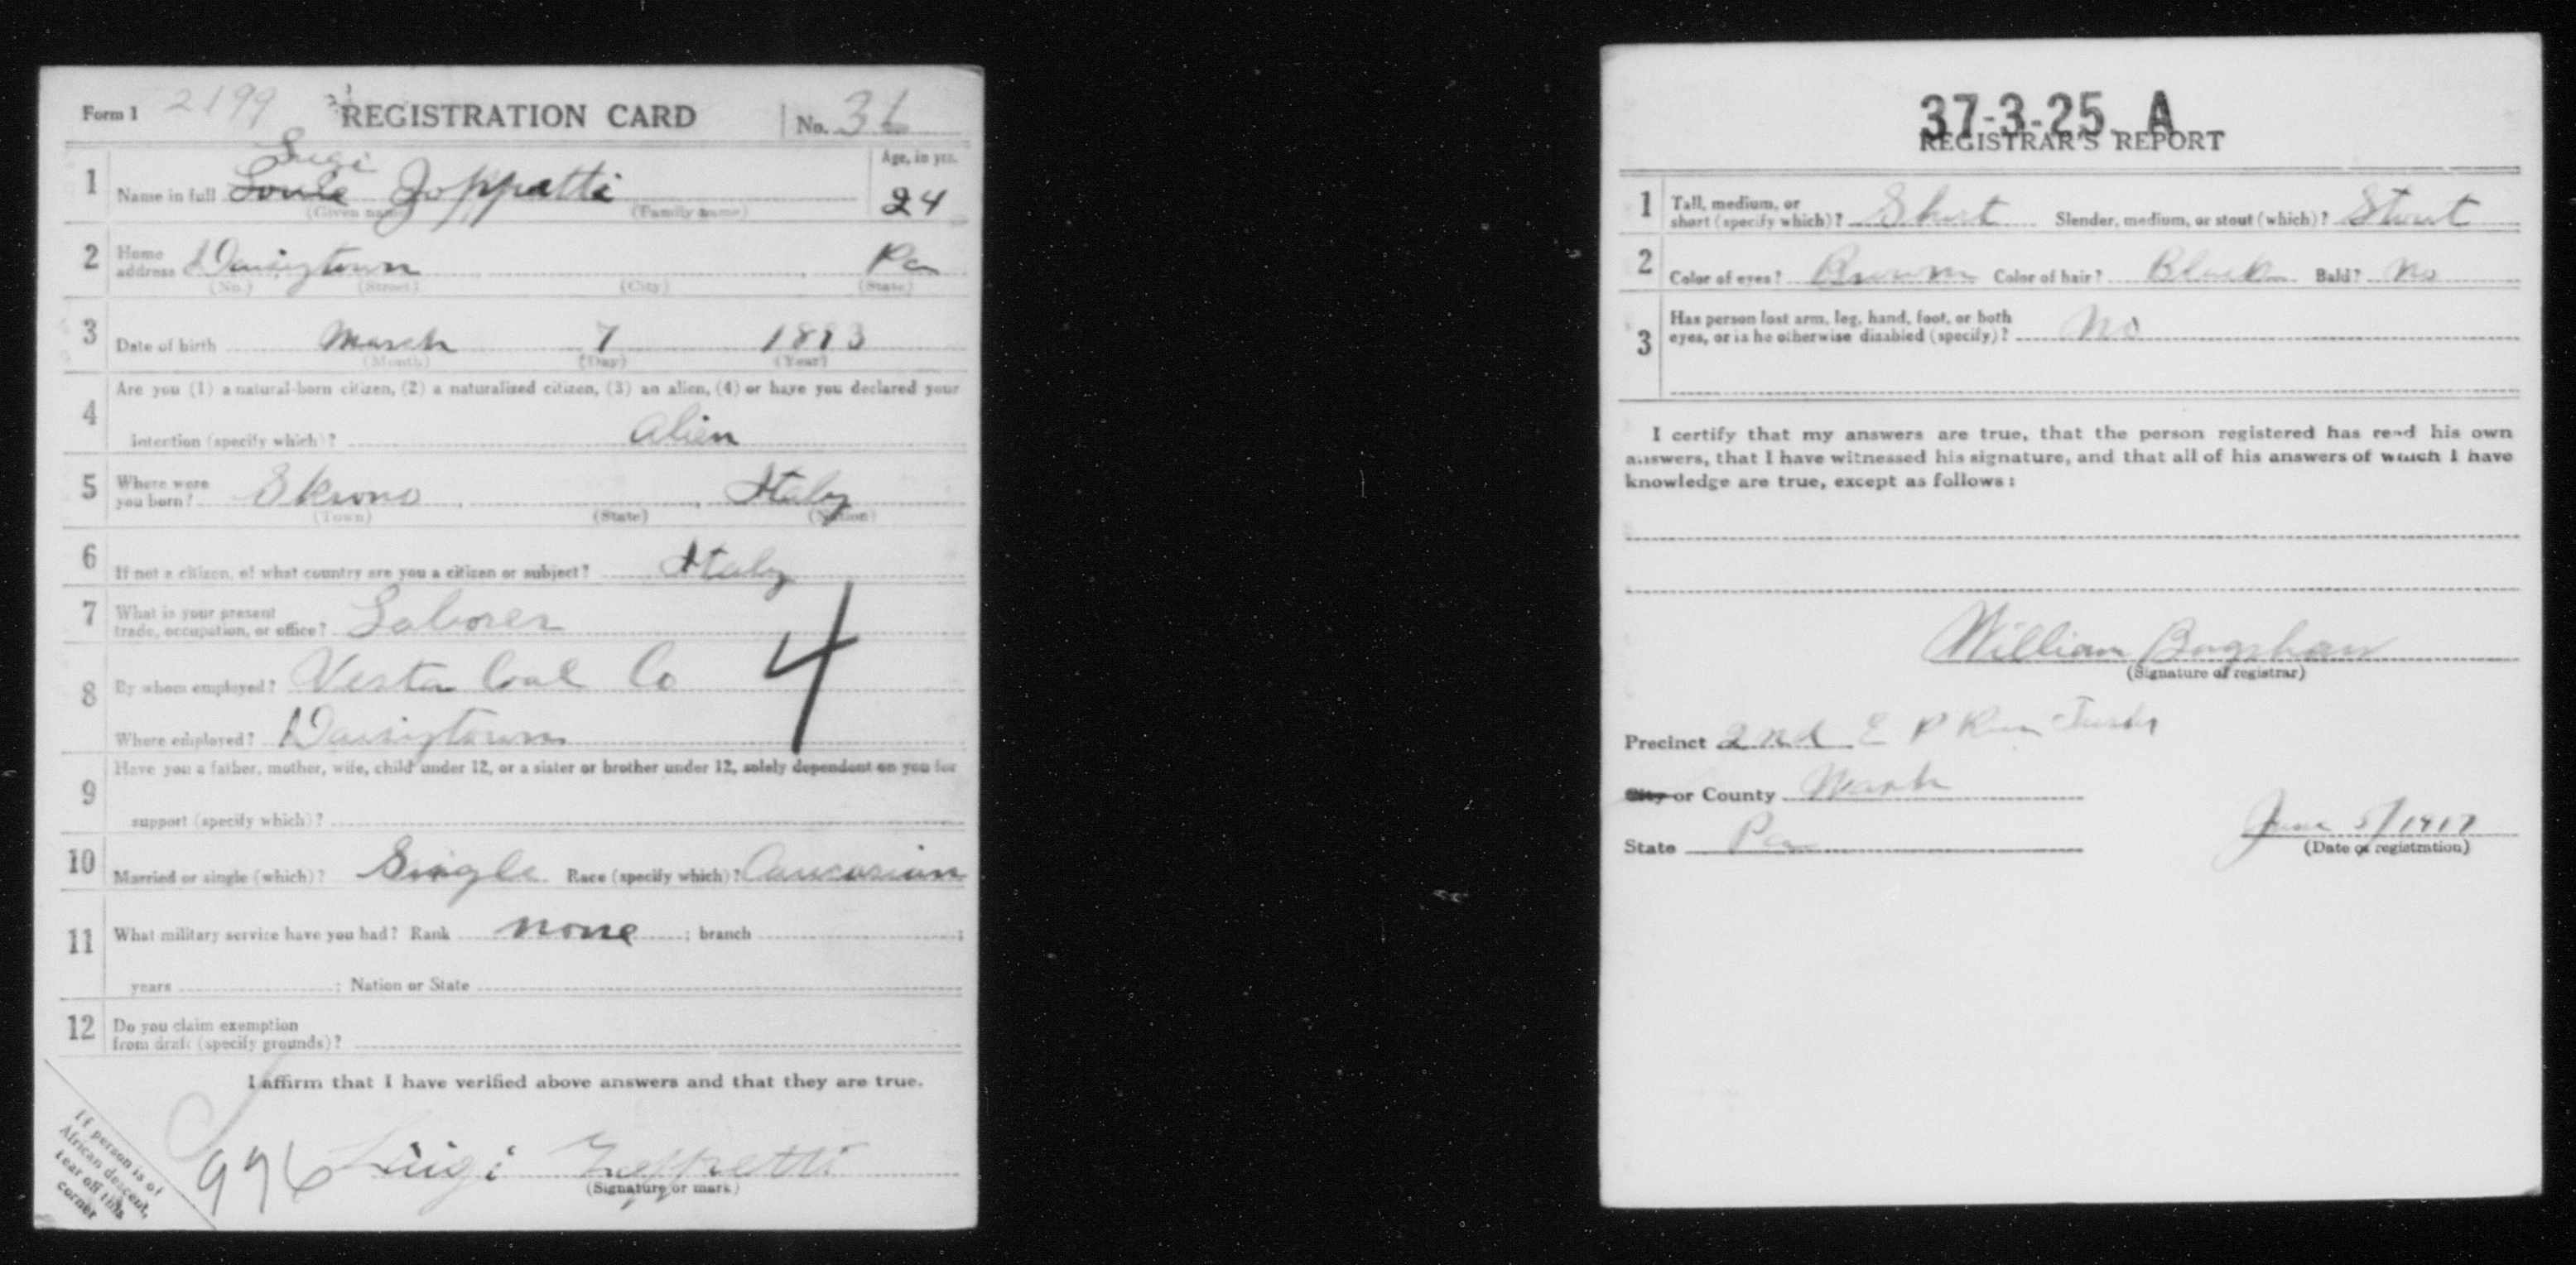 Form 1 2199 REGISTRATION CARD No. 36
1 Name in full Luigi Louie Joppatti Age, in yrs. 24
(Given name) (Family name)
2 Home address Daisytown Pa
(No.) (Street) (City) (State)
3 Date of birth March 7 1893
(Month) (Day) (Year)
4 Are you (1) a natural-born citizen, (2) a naturalized citizen, (3) an alien, (4) or have you declared your
intention (specify which)? Alien
5 Where were you born? Italy
(Town) (State) (Nation)
6 If not a citizen, of what country are you a citizen or subject? Italy
7 What is your present trade, occupation, or office? Laborer
8 By whom employed? Vesta Coal Co
Where employed? Daisytown
4
9 Have you a father, mother, wife, child under 12, or a sister or brother under 12, solely dependent on you for
support (specify which)?
10 Married or single (which)? Single Race (specify which)? Caucasian
11 What military service have you had? Rank none ; branch ;
years ; Nation or State
12 Do you claim exemption
from draft (specify grounds)?
I affirm that I have verified above answers and that they are true.
996 Luigi
(Signature or mark)
If person is of
African descent,
tear off this
corner
37-3-25 A
REGISTRAR'S REPORT
1 Tall, medium, or
short (specify which)? Short Slender, medium, or stout (which)? Stout
2 Color of eyes? Brown Color of hair? Black Bald? No
3 Has person lost arm, leg, hand, foot, or both
eyes, or is he otherwise disabled (specify)? No
I certify that my answers are true, that the person registered has read his own
answers, that I have witnessed his signature, and that all of his answers of which I have
knowledge are true, except as follows:
William Bagshaw
(Signature of registrar)
Precinct 2nd E P Run
City or County Wash
State Pa
June 5/1917
(Date of registration)